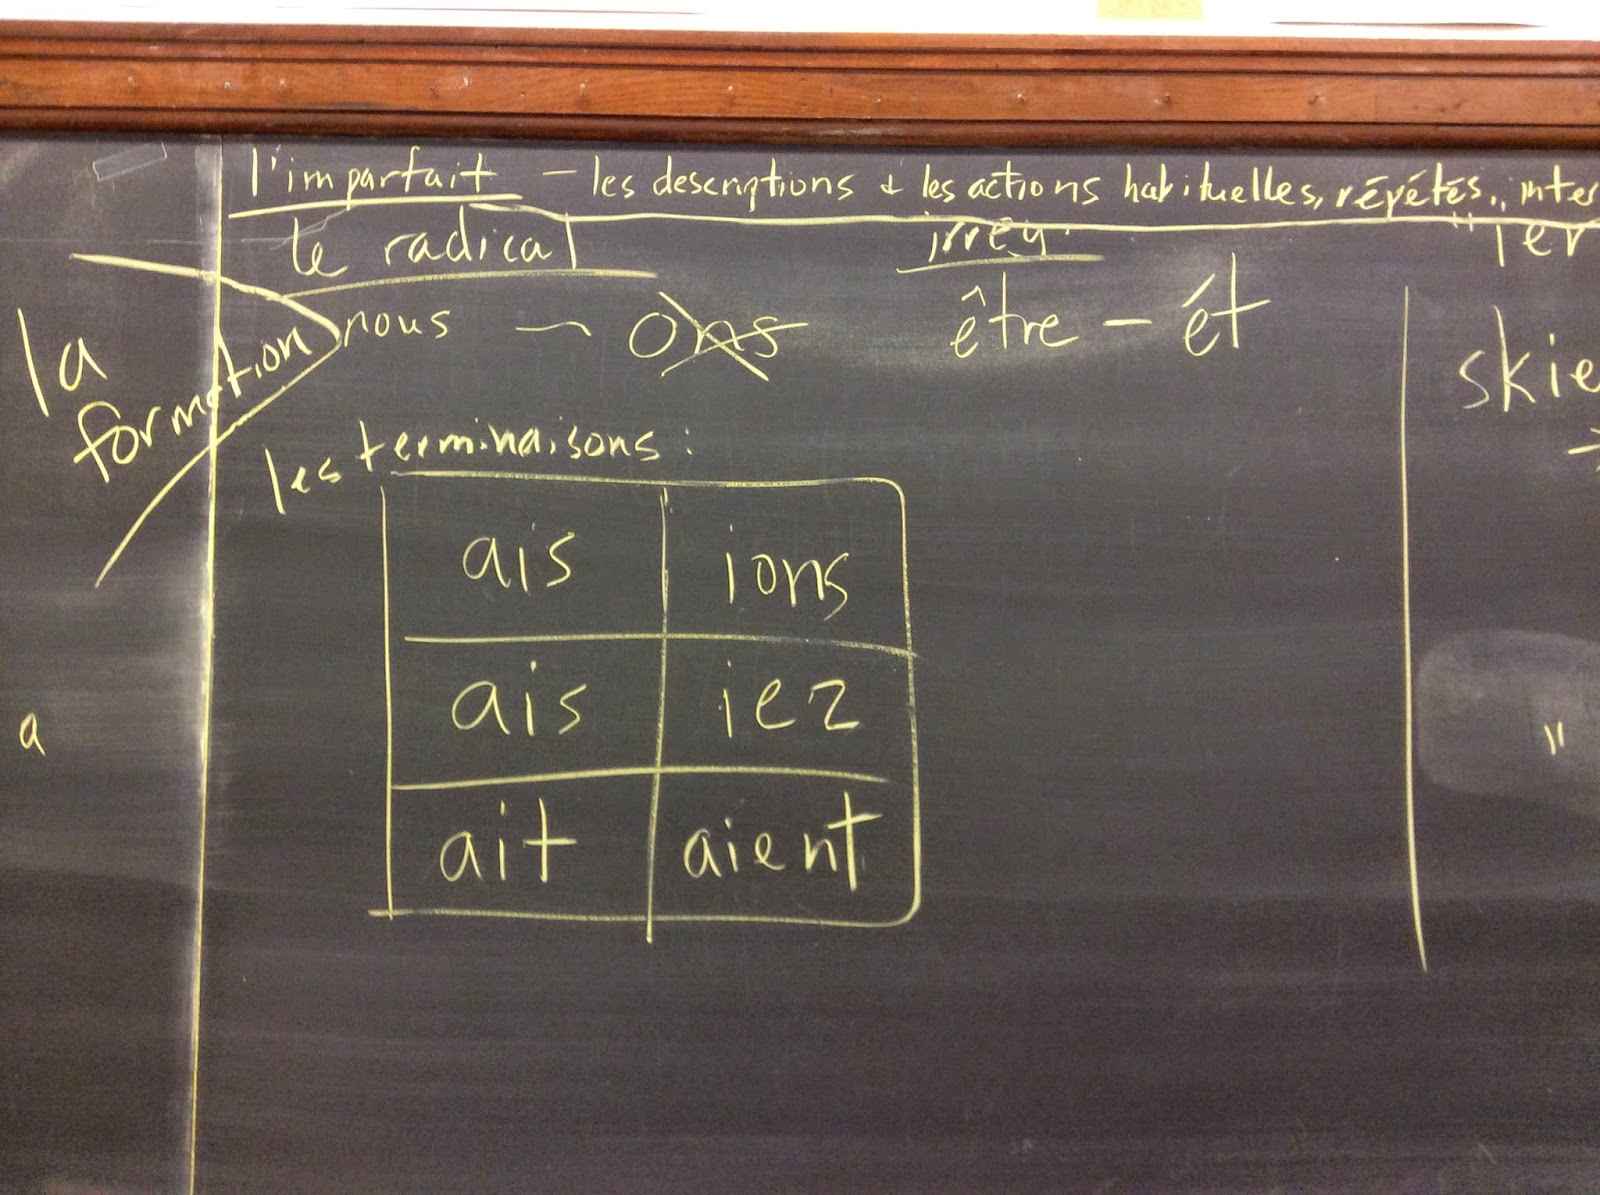 l'imparfait – les descriptions + les actions habituelles, répétés,, inter
le radical
irrég.
"ier
la formation
nous – ons
être – ét
skie
les terminaisons:
ais ions
ais iez
ait aient
a
"